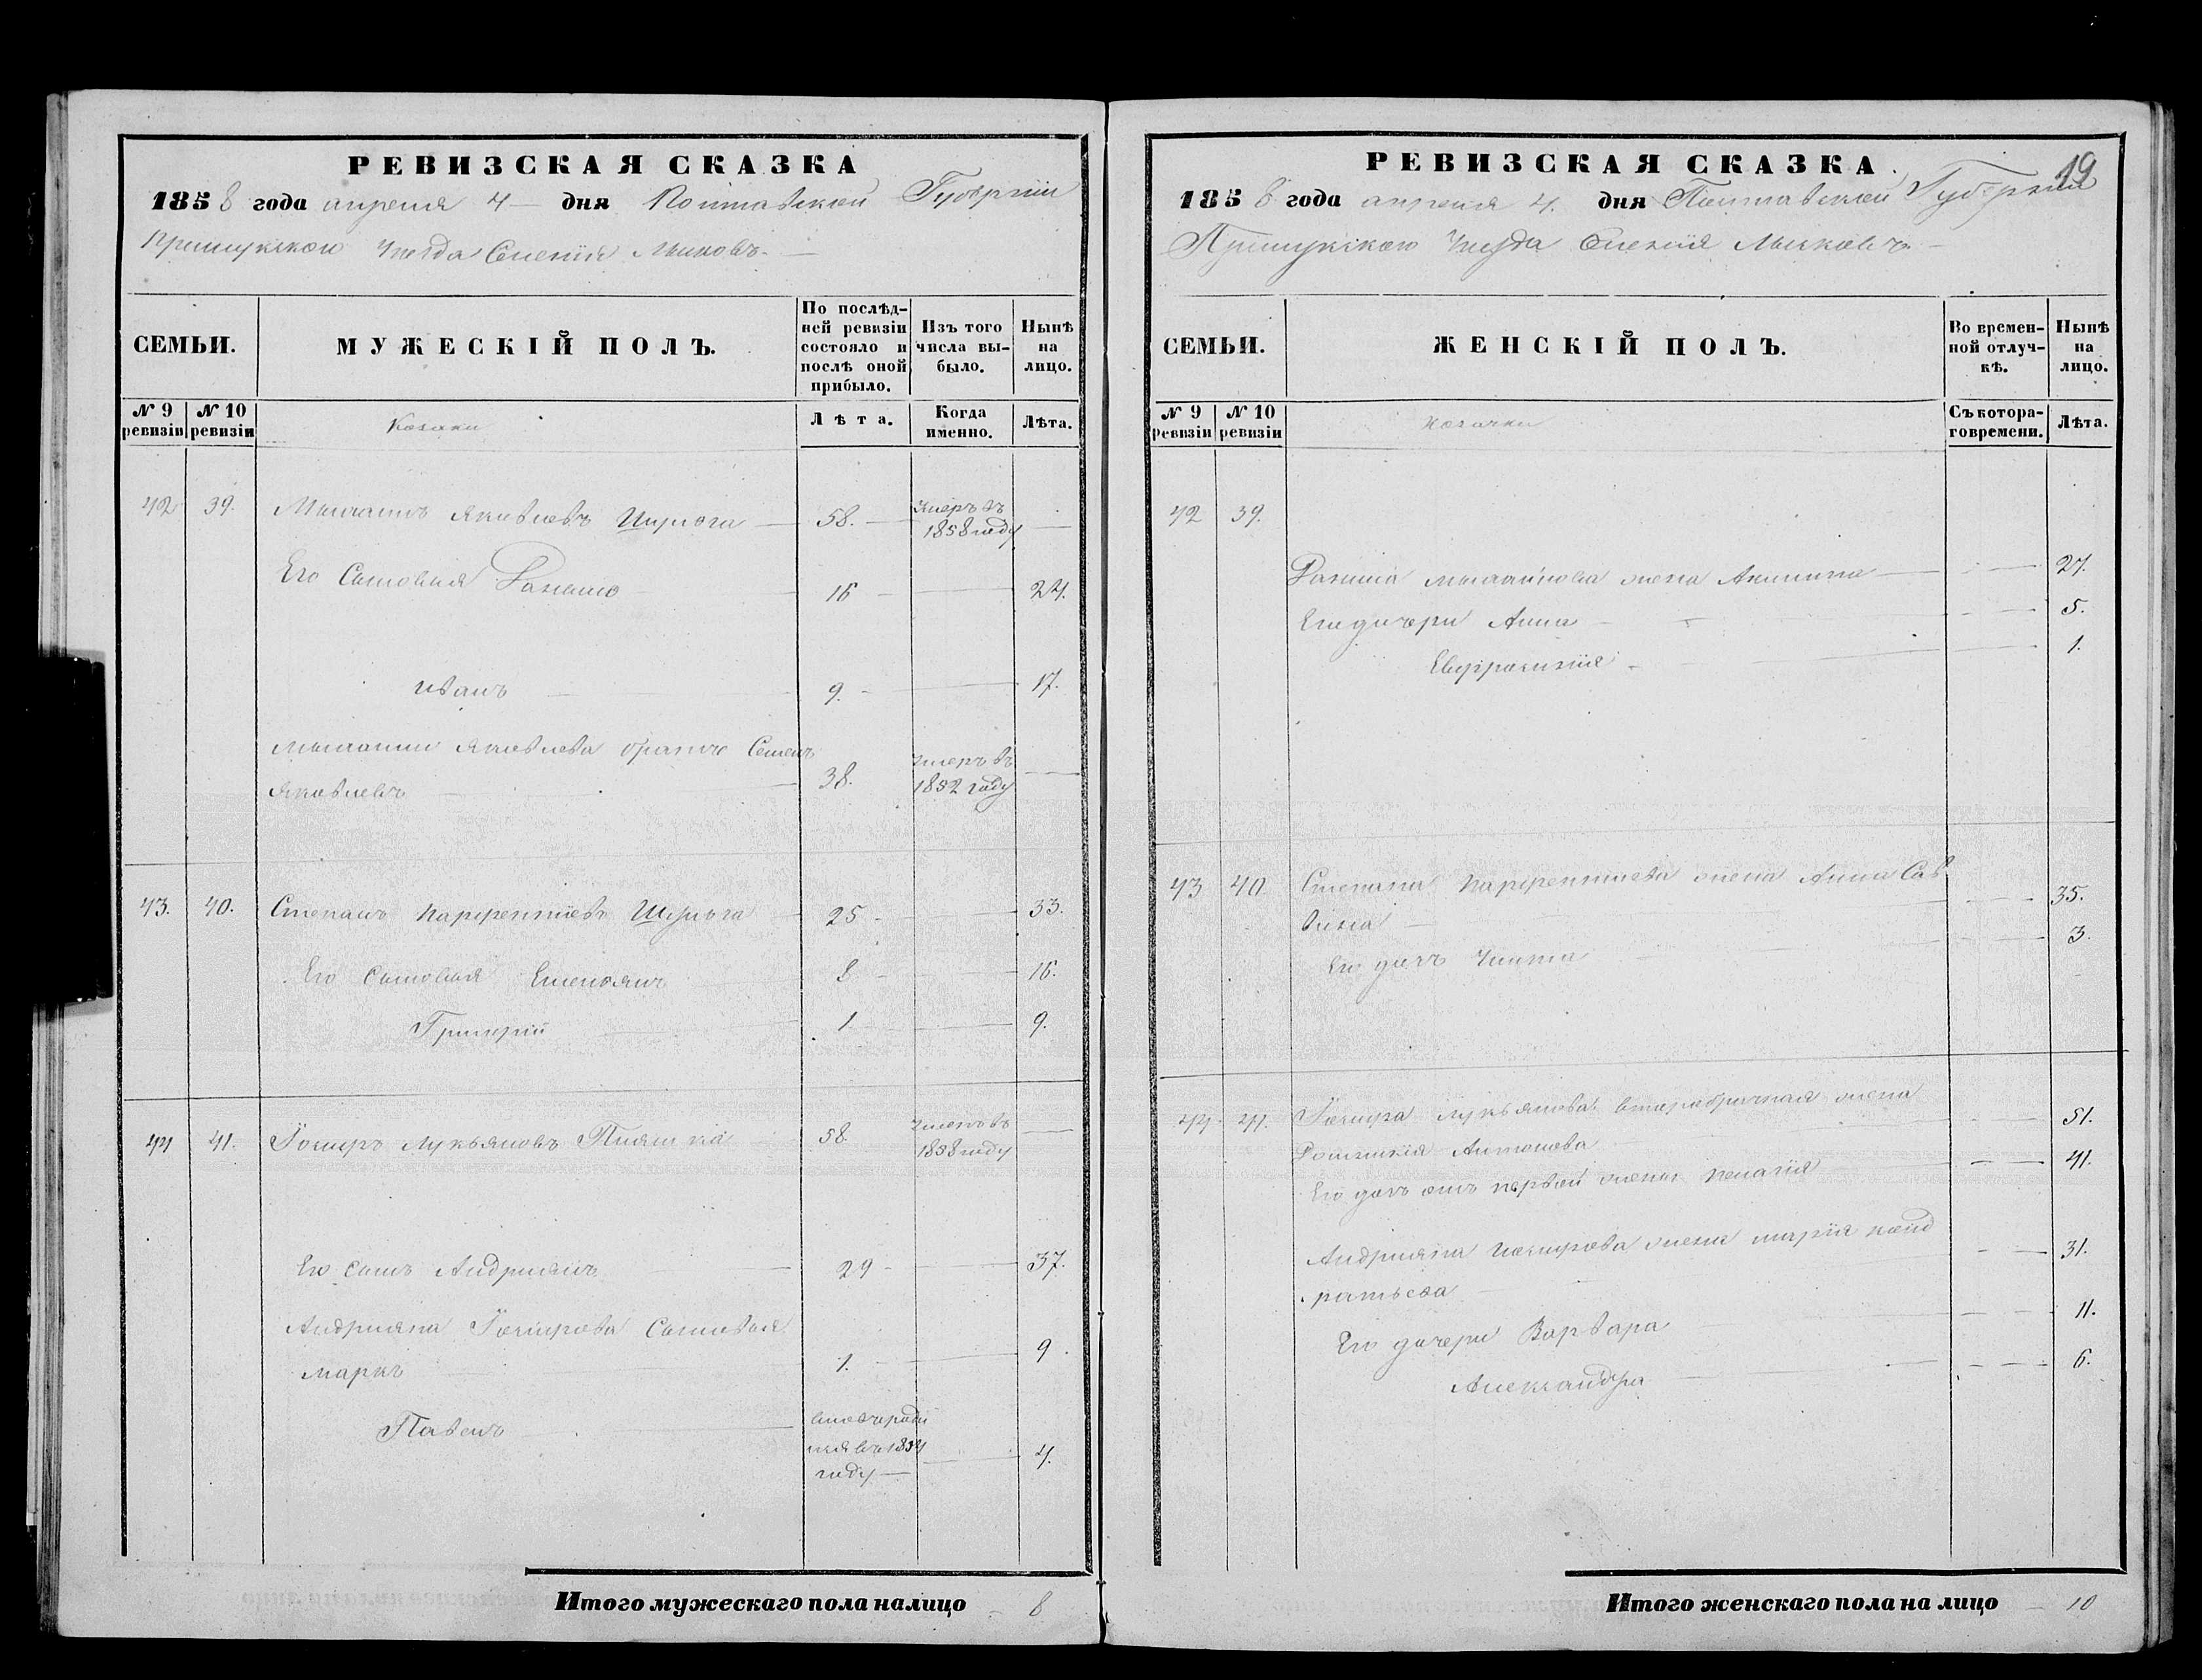 РЕВИЗСКАЯ СКАЗКА
1858 года апреля 4 дня Полтавской Губернии
Прилукского уезда Селения Лынов.
СЕМЬИ.
МУЖЕСКІЙ ПОЛЪ.
По послѣд-
ней ревизіи
состояло и
послѣ оной
прибыло.
Изъ того
числа вы-
было.
Нынѣ
на
лицо.
№ 9
ревизіи
№ 10
ревизіи
Козаки
Лѣта.
Когда
именно.
Лѣта.
42 39. Яковлевъ 58. Умеръ въ
1858 году
Его Сыновья 16 24.
Иванъ 9. 17.
Яковлева братъ Семенъ
Яковлевъ 38. умеръ въ
1852 году
43. 40. Степанъ Парфентіевъ 25 33.
Его сыновья Емельянъ 8 16.
Григорій 1 9.
44 41. Іосифъ Лукьяновъ 58 умеръ въ
1858 году
Его сынъ Андриянъ 29 37.
Андрияна Іосифова Сыновья
Маркъ 1. 9.
Павелъ вновь роди
лся въ 1854
году 4.
Итого мужескаго пола налицо 8
РЕВИЗСКАЯ СКАЗКА.
19
1858 года апреля 4. дня Полтавской Губерніи
Прилукского уезда Селения
СЕМЬИ.
ЖЕНСКІЙ ПОЛЪ.
Во времен-
ной отлуч-
кѣ.
Нынѣ
на
лицо.
№ 9
ревизіи
№ 10
ревизіи
козачки
Съ котора-
го времени.
Лѣта.
42 39.
жена 27.
Его дочери Анна 5.
Евфросинія 1.
43 40 Степана Парфентиева жена Анна Сав
35.
Его дочь 3.
44. 41. Іосифа Лукьянова второбрачная жена
Антонова 51.
Его дочь отъ первой жены Пелагія 41.
Андрияна Іосифова жена Марія Конд
ратьева 31.
Его дочери Варвара 11.
Александра 6.
Итого женскаго пола на лицо 10